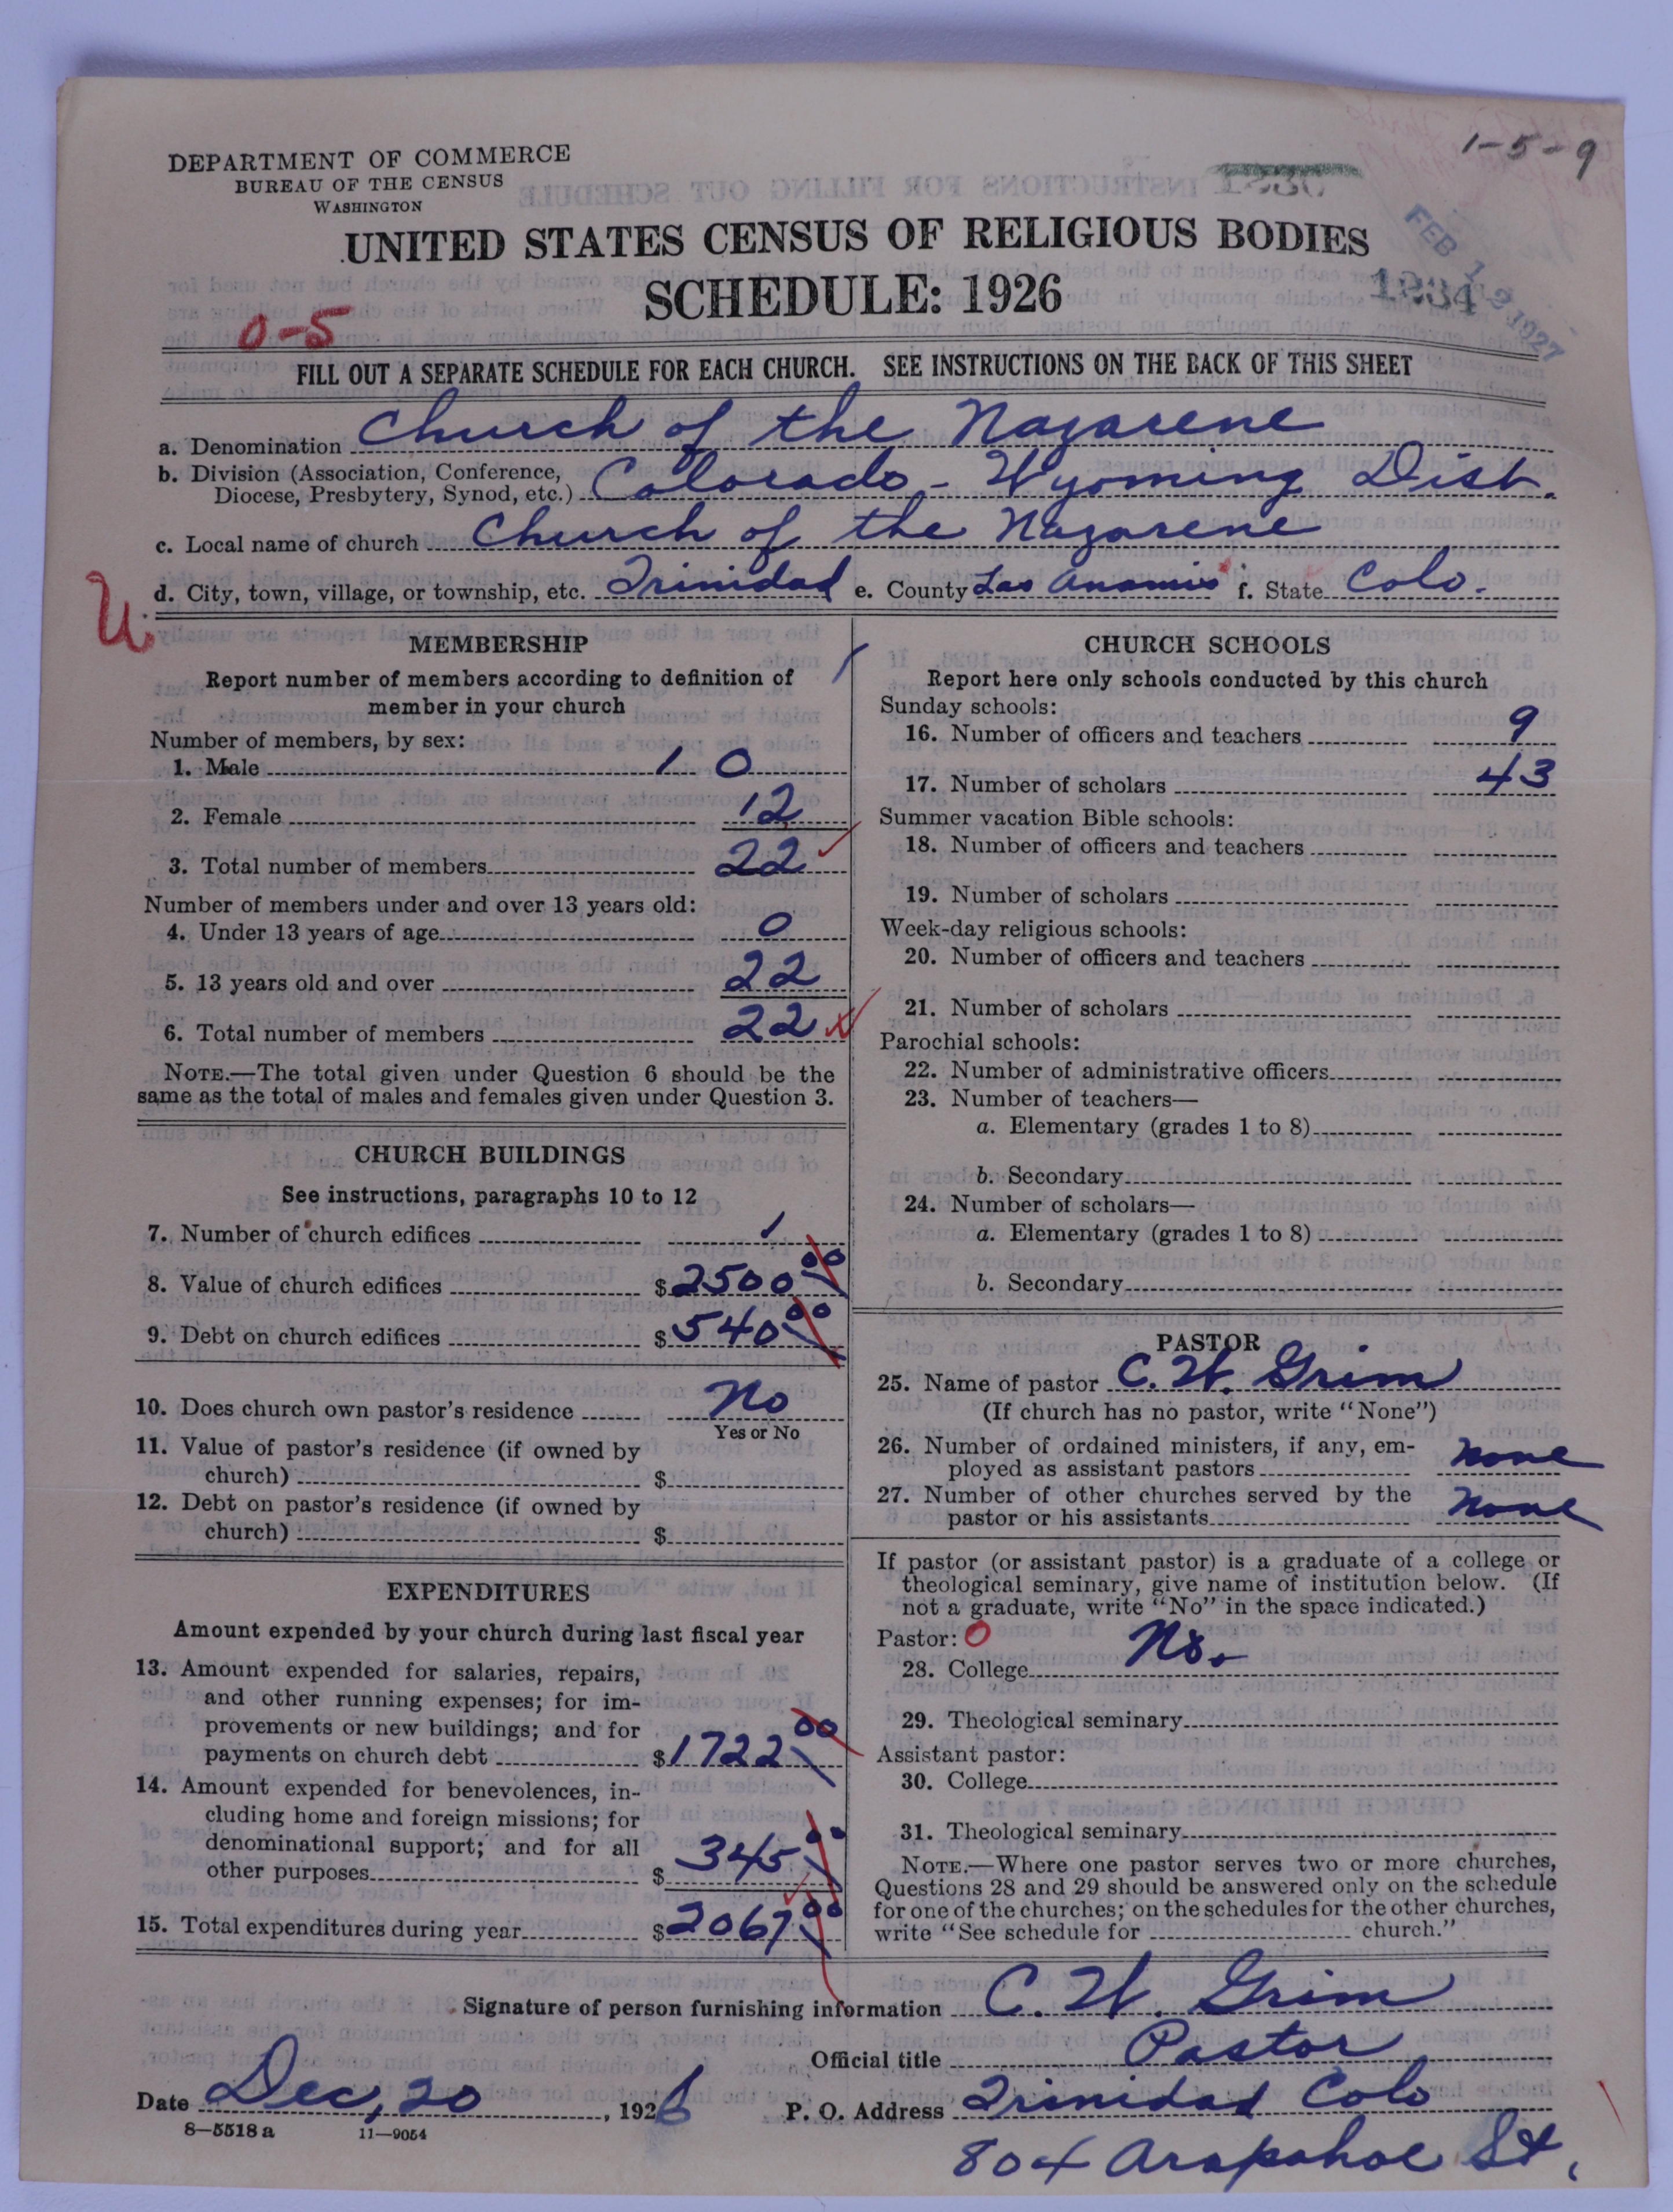 1-5-9
DEPARTMENT OF COMMERCE
BUREAU OF THE CENSUS
WASHINGTON
UNITED STATES CENSUS OF RELIGIOUS BODIES
SCHEDULE: 1926
1934
FEB 1 1927
0-5
FILL OUT A SEPARATE SCHEDULE FOR EACH CHURCH. SEE INSTRUCTIONS ON THE BACK OF THIS SHEET
a. Denomination Church of the Nazarene
b. Division (Association, Conference,
Diocese, Presbytery, Synod, etc.) Colorado - Wyoming Dist.
c. Local name of church Church of the Nazarene
U.
d. City, town, village, or township, etc. Trinidad e. County Las Anamis f. State Colo.
MEMBERSHIP
Report number of members according to definition of
member in your church
Number of members, by sex:
1. Male 10
2. Female 12
3. Total number of members 22
Number of members under and over 13 years old:
4. Under 13 years of age 0
5. 13 years old and over 22
6. Total number of members 22
NOTE.—The total given under Question 6 should be the
same as the total of males and females given under Question 3.
CHURCH BUILDINGS
See instructions, paragraphs 10 to 12
7. Number of church edifices 1
8. Value of church edifices $2500 00
9. Debt on church edifices $540 00
10. Does church own pastor's residence No
Yes or No
11. Value of pastor's residence (if owned by
church) $
12. Debt on pastor's residence (if owned by
church) $
EXPENDITURES
Amount expended by your church during last fiscal year
13. Amount expended for salaries, repairs,
and other running expenses; for im-
provements or new buildings; and for
payments on church debt $1722 00
14. Amount expended for benevolences, in-
cluding home and foreign missions; for
denominational support; and for all
other purposes $345 00
15. Total expenditures during year $2067 00
CHURCH SCHOOLS
Report here only schools conducted by this church
Sunday schools:
16. Number of officers and teachers 9
17. Number of scholars 43
Summer vacation Bible schools:
18. Number of officers and teachers
19. Number of scholars
Week-day religious schools:
20. Number of officers and teachers
21. Number of scholars
Parochial schools:
22. Number of administrative officers
23. Number of teachers—
a. Elementary (grades 1 to 8)
b. Secondary
24. Number of scholars—
a. Elementary (grades 1 to 8)
b. Secondary
PASTOR
25. Name of pastor C. W. Grim
(If church has no pastor, write "None")
26. Number of ordained ministers, if any, em-
ployed as assistant pastors none
27. Number of other churches served by the
pastor or his assistants none
If pastor (or assistant pastor) is a graduate of a college or
theological seminary, give name of institution below. (If
not a graduate, write "No" in the space indicated.)
Pastor: 0
28. College No.
29. Theological seminary
Assistant pastor:
30. College
31. Theological seminary
NOTE.—Where one pastor serves two or more churches,
Questions 28 and 29 should be answered only on the schedule
for one of the churches; on the schedules for the other churches,
write "See schedule for church."
Signature of person furnishing information C. W. Grim
Official title Pastor
Date Dec, 20, 1926 P. O. Address Trinidad Colo
8—5518 a 11—9054
804 Arapahoe St,